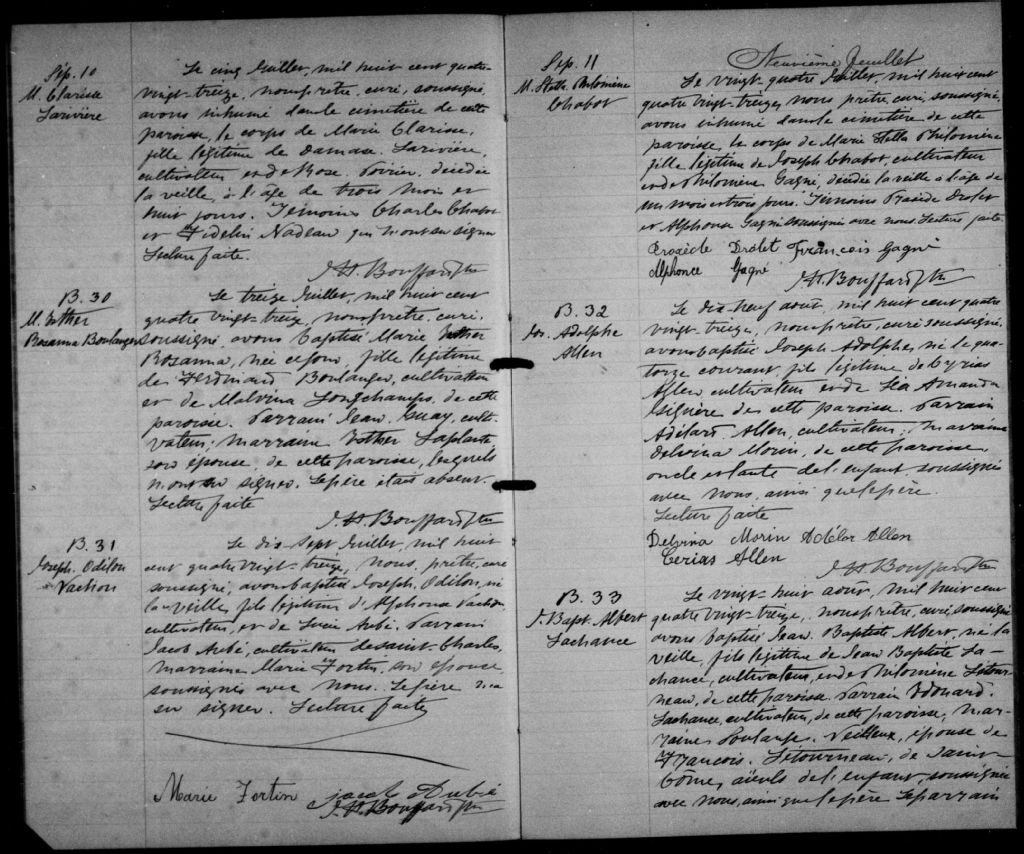 Sép. 10
M. Clarisse
Larivière
Le cinq Juillet, mil huit cent quatre-
vingt-treize, nous prêtre, curé, soussigné,
avons inhumé dans le cimetière de cette
paroisse, le corps de Marie Clarisse,
fille légitime de Damase Larivière,
cultivateur et de Rose Poirier, décédée
la veille, à l'âge de trois mois et
huit jours. Témoins Charles Chabot
et Fidelin Nadeau qui n'ont su signer
Lecture faite.
J.H. Bouffard Ptre
B. 30
M. Esther
Rosanna Boulanger
Le treize Juillet, mil huit cent
quatre vingt-treize, nous prêtre, curé,
soussigné, avons baptisé Marie Esther
Rosanna, née ce jour, fille légitime
de Ferdinand Boulanger, cultivateur
et de Malvina Longchamps, de cette
paroisse. Parrain Jean Guay, culti-
vateur, marraine Esther Laplante,
son épouse, de cette paroisse, lesquels
n'ont su signer. Le père étant absent.
Lecture faite
J.H. Bouffard Ptre
B. 31
Joseph. Odilon
Vachon
Le dix-sept Juillet, mil huit
cent quatre vingt-treize, nous, prêtre, curé
soussigné, avons baptisé Joseph, Odilon, né
la veille, fils légitime d'Alphonse Vachon
cultivateur, et de Lucie Aubé. Parrain
Jacob Aubé, cultivateur de Saint-Charles,
marraine Marie Fortin, son épouse
soussignés avec nous. Le père n'a
su signer. Lecture faite
Marie Fortin Jacob
J.H. Bouffard Ptre
Sép. 11
M. Stella Philomène
Chabot
Neuvième feuillet
Le vingt-quatre Juillet, mil huit cent
quatre vingt-treize, nous prêtre, curé, soussigné,
avons inhumé dans le cimetière de cette
paroisse, le corps de Marie Stella Philomène
fille légitime de Joseph Chabot, cultivateur
et de Philomène Gagné, décédée la veille à l'âge de
un mois et trois jours. Témoins Praxède Drolet
et Alphonse Gagné soussignés avec nous Lecture faite
Praxède Drolet François Gagné
Alphonce Gagné
J.H. Bouffard Ptre
B. 32
Jos. Adolphe
Allen
Le dix-neuf août, mil huit cent quatre
vingt-treize, nous prêtre, curé soussigné,
avons baptisé Joseph Adolphe, né le qua-
torze courant, fils légitime de Cyrias
Allen cultivateur et de Léa Amanda
de cette paroisse. Parrain
Adélard Allen, cultivateur; marraine
Delvina Morin, de cette paroisse,
oncle et tante de l'enfant soussignés
avec nous, ainsi que le père.
Lecture faite
Delvina Morin Adélar Allen
Cerias Allen
J.H. Bouffard Ptre
B. 33
J. Bapt. Albert
Lachance
Le vingt-huit août, mil huit cent
quatre vingt-treize, nous prêtre, curé, soussigné
avons baptisé Jean Baptiste Albert, né la
veille, fils légitime de Jean Baptiste La-
chance, cultivateur, et de Philomène Létour-
neau, de cette paroisse. Parrain Edouard
Lachance, cultivateur, de cette paroisse, mar-
raine Veilleux, épouse de
François Létourneau, de Saint
Côme, aïeuls de l'enfant, soussignés
avec nous, ainsi que le père Le parrain